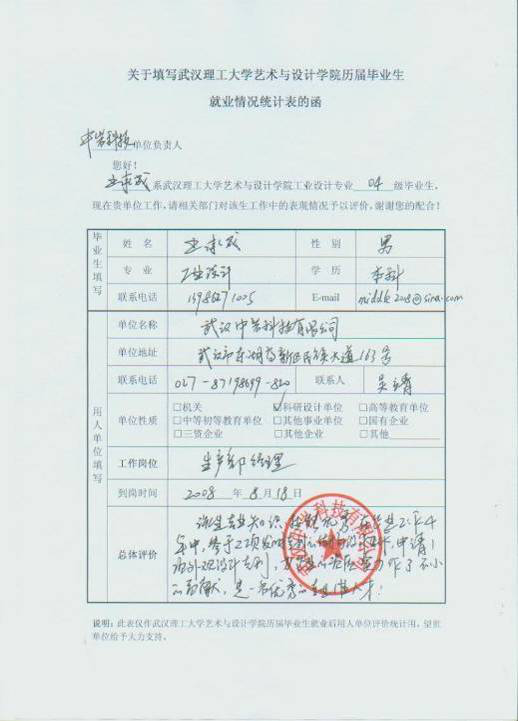 关于填写武汉理工大学艺术与设计学院历届毕业生
就业情况统计表的函
中岩科技单位负责人
您好！
系武汉理工大学艺术与设计学院工业设计专业 04 级毕业生，
现在贵单位工作，请相关部门对该生工作中的表现情况予以评价，谢谢您的配合！
毕业生填写
姓 名 性 别 男
专 业 工业设计 学 历 本科
联系电话 E-mail middle2008@sina.com
用人单位填写
单位名称 武汉中岩科技有限公司
单位地址 武汉市东湖高新区民族大道163号
联系电话 027-87198699-820 联系人 吴
单位性质 □机关 ☑科研设计单位 □高等教育单位
□中等初等教育单位 □其他事业单位 □国有企业
□三资企业 □其他企业 □其他
工作岗位 生产部经理
到岗时间 2008 年 8 月 18 日
总体评价
该生专业知识 优秀，在毕业工作4
年中，参于2项 申请1
项外观设计专利， 作了不小
的贡献，是一名优秀的
说明：此表仅作武汉理工大学艺术与设计学院历届毕业生就业后用人单位评价统计用，望贵
单位给予大力支持。